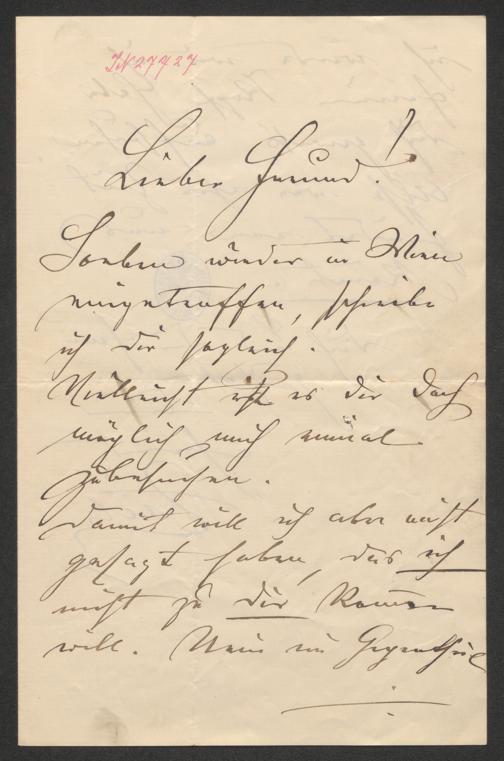 IN 27927
Lieber Freund!
Soeben wieder in Wien
eingetroffen, schreibe
ich dir sogleich.
Vielleicht ist es dir doch
möglich mich einmal
zubesuchen.
Damit will ich aber nicht
gesagt haben, das ich
nicht zu dir kommen
will. Nein im Gegentheil